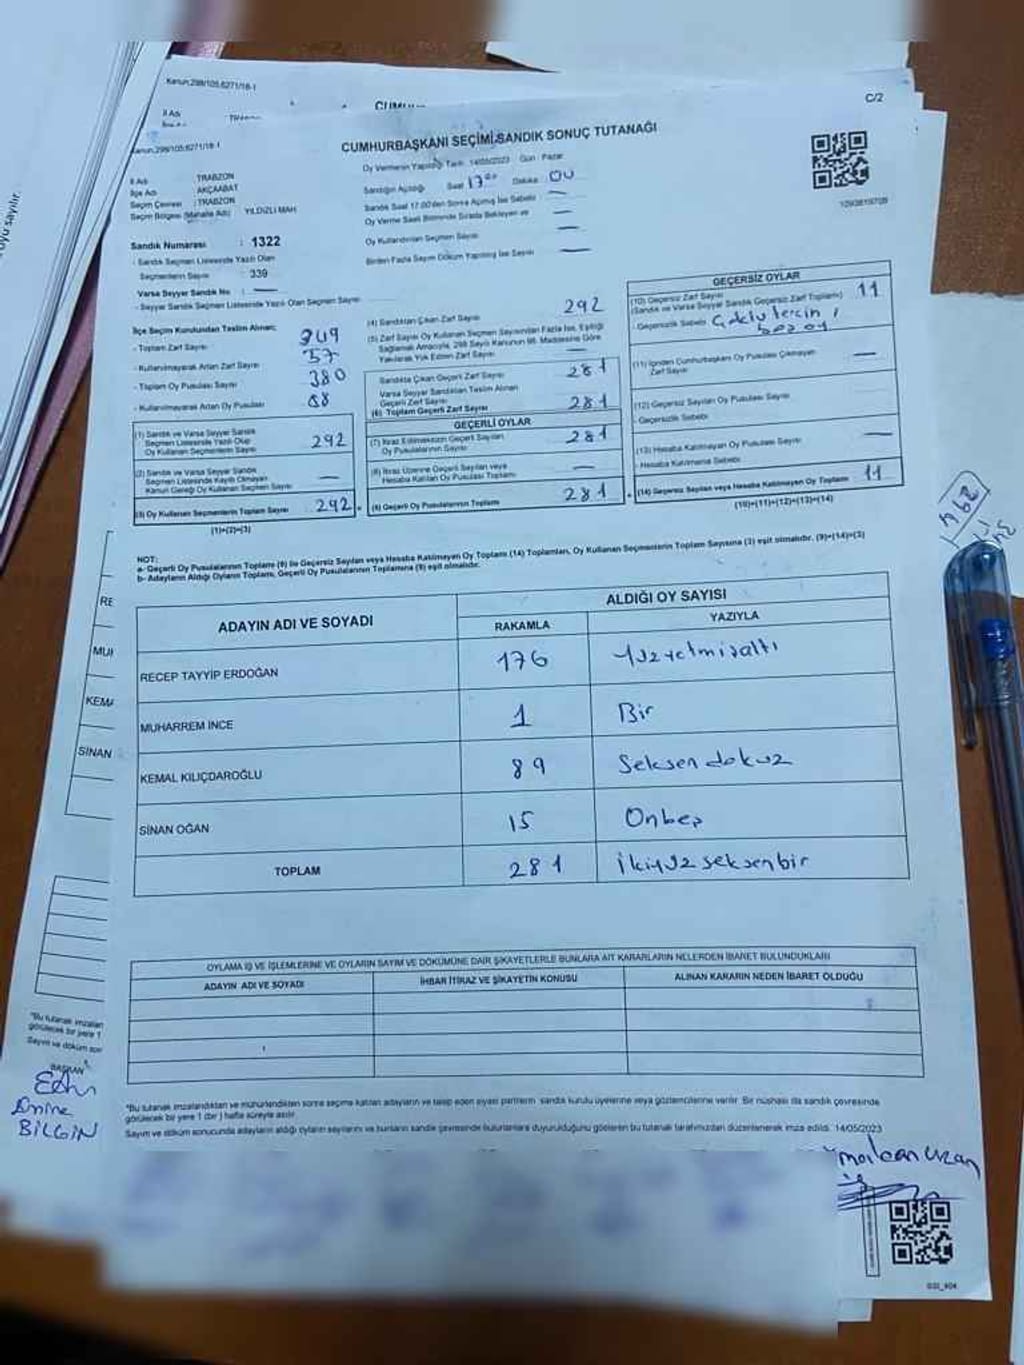 Kanun,298/105,6271/18-1
İl Adı
C/2
CUMHURBAŞKANI SEÇİMİ SANDIK SONUÇ TUTANAĞI
Kanun,298/105,6271/18-1
İl Adı : TRABZON
İlçe Adı : AKÇAABAT
Seçim Çevresi : TRABZON
Seçim Bölgesi (Mahalle Adı) YILDIZLI MAH
Sandık Numarası : 1322
- Sandık Seçmen Listesinde Yazılı Olan
Seçmenlerin Sayısı : 339
Varsa Seyyar Sandık No : —
- Seyyar Sandık Seçmen Listesinde Yazılı Olan Seçmen Sayısı
Oy Vermenin Yapıldığı Tarih 14/05/2023 Gün Pazar
Sandığın Açıldığı Saat 17 00 Dakika 00
Sandık Saat 17.00'den Sonra Açılmış İse Sebebi —
Oy Verme Saati Bitiminde Sırada Bekleyen ve —
Oy Kullandırılan Seçmen Sayısı —
Birden Fazla Sayım Döküm Yapılmış İse Sayısı —
İlçe Seçim Kurulundan Teslim Alınan;
- Toplam Zarf Sayısı 349
- Kullanılmayarak Artan Zarf Sayısı 57
- Toplam Oy Pusulası Sayısı 380
- Kullanılmayarak Artan Oy Pusulası 88
(1) Sandık ve Varsa Seyyar Sandık
Seçmen Listesinde Yazılı Olup
Oy Kullanan Seçmenlerin Sayısı 292
(2) Sandık ve Varsa Seyyar Sandık
Seçmen Listesinde Kayıtlı Olmayan
Kanun Gereği Oy Kullanan Seçmen Sayısı —
(3) Oy Kullanan Seçmenlerin Toplam Sayısı 292
(1)+(2)=(3)
(4) Sandıktan Çıkan Zarf Sayısı 292
(5) Zarf Sayısı Oy Kullanan Seçmen Sayısından Fazla İse, Eşitliği
Sağlamak Amacıyla, 298 Sayılı Kanunun 98. Maddesine Göre
Yakılarak Yok Edilen Zarf Sayısı —
Sandıkta Çıkan Geçerli Zarf Sayısı 281
Varsa Seyyar Sandıktan Teslim Alınan
Geçerli Zarf Sayısı
(6) Toplam Geçerli Zarf Sayısı 281
GEÇERLİ OYLAR
(7) İtiraz Edilmeksizin Geçerli Sayılan
Oy Pusulalarının Sayısı 281
(8) İtiraz Üzerine Geçerli Sayılan veya
Hesaba Katılan Oy Pusulası Toplamı —
(9) Geçerli Oy Pusulalarının Toplamı 281
GEÇERSİZ OYLAR
(10) Geçersiz Zarf Sayısı
(Sandık ve Varsa Seyyar Sandık Geçersiz Zarf Toplamı) 11
- Geçersizlik Sebebi
(11) İçinden Cumhurbaşkanı Oy Pusulası Çıkmayan
Zarf Sayısı —
(12) Geçersiz Sayılan Oy Pusulası Sayısı
- Geçersizlik Sebebi
(13) Hesaba Katılmayan Oy Pusulası Sayısı —
- Hesaba Katılmama Sebebi
(14) Geçersiz Sayılan veya Hesaba Katılmayan Oy Toplamı 11
(10)+(11)+(12)+(13)=(14)
NOT:
a- Geçerli Oy Pusulalarının Toplamı (9) ile Geçersiz Sayılan veya Hesaba Katılmayan Oy Toplamı (14) Toplamları, Oy Kullanan Seçmenlerin Toplam Sayısına (3) eşit olmalıdır. (9)+(14)=(3)
b- Adayların Aldığı Oyların Toplamı, Geçerli Oy Pusulalarının Toplamına (9) eşit olmalıdır.
ADAYIN ADI VE SOYADI ALDIĞI OY SAYISI
RAKAMLA YAZIYLA
RECEP TAYYİP ERDOĞAN 176 Yüzyetmişaltı
MUHARREM İNCE 1 Bir
KEMAL KILIÇDAROĞLU 89 Seksen dokuz
SİNAN OĞAN 15 Onbeş
TOPLAM 281 İkiyüz seksenbir
OYLAMA İŞ VE İŞLEMLERİNE VE OYLARIN SAYIM VE DÖKÜMÜNE DAİR ŞİKAYETLERLE BUNLARA AİT KARARLARIN NELERDEN İBARET BULUNDUKLARI
ADAYIN ADI VE SOYADI İHBAR İTİRAZ VE ŞİKAYETİN KONUSU ALINAN KARARIN NEDEN İBARET OLDUĞU
*Bu tutanak imzalandıktan ve mühürlendikten sonra seçime katılan adayların ve talep eden siyasi partilerin sandık kurulu üyelerine veya gözlemcilerine verilir. Bir nüshası da sandık çevresinde
görülecek bir yere 1 (bir) hafta süreyle asılır.
Sayım ve döküm sonucunda adayların aldığı oyların sayılarını ve bunların sandık çevresinde bulunanlara duyurulduğunu gösteren bu tutanak tarafımızdan düzenlenerek imza edildi. 14/05/2023
RE
MUH
KEMA
SİNAN
*Bu tutanak imzalan
görülecek bir yere 1
Sayım ve döküm son
BAŞKAN
Emine
BİLGİN
294